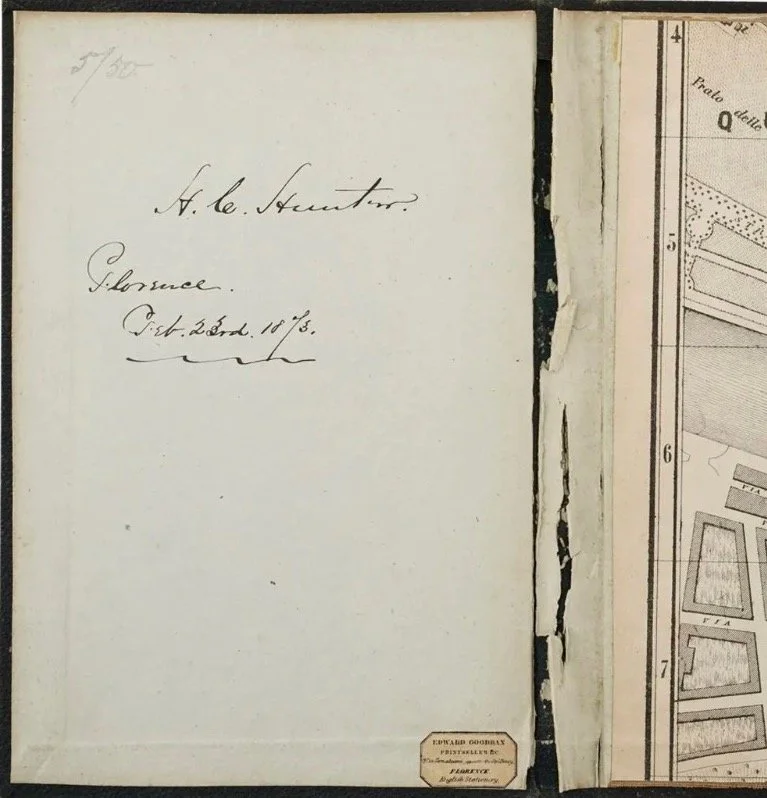 5/50
H. C. Hunter.
Florence.
Feb. 23rd. 1873.
EDWARD GOODBAN
PRINTSELLER &c
FLORENCE
English Stationery
4
Prato delle
Q
5
6
VIA
VIA
7